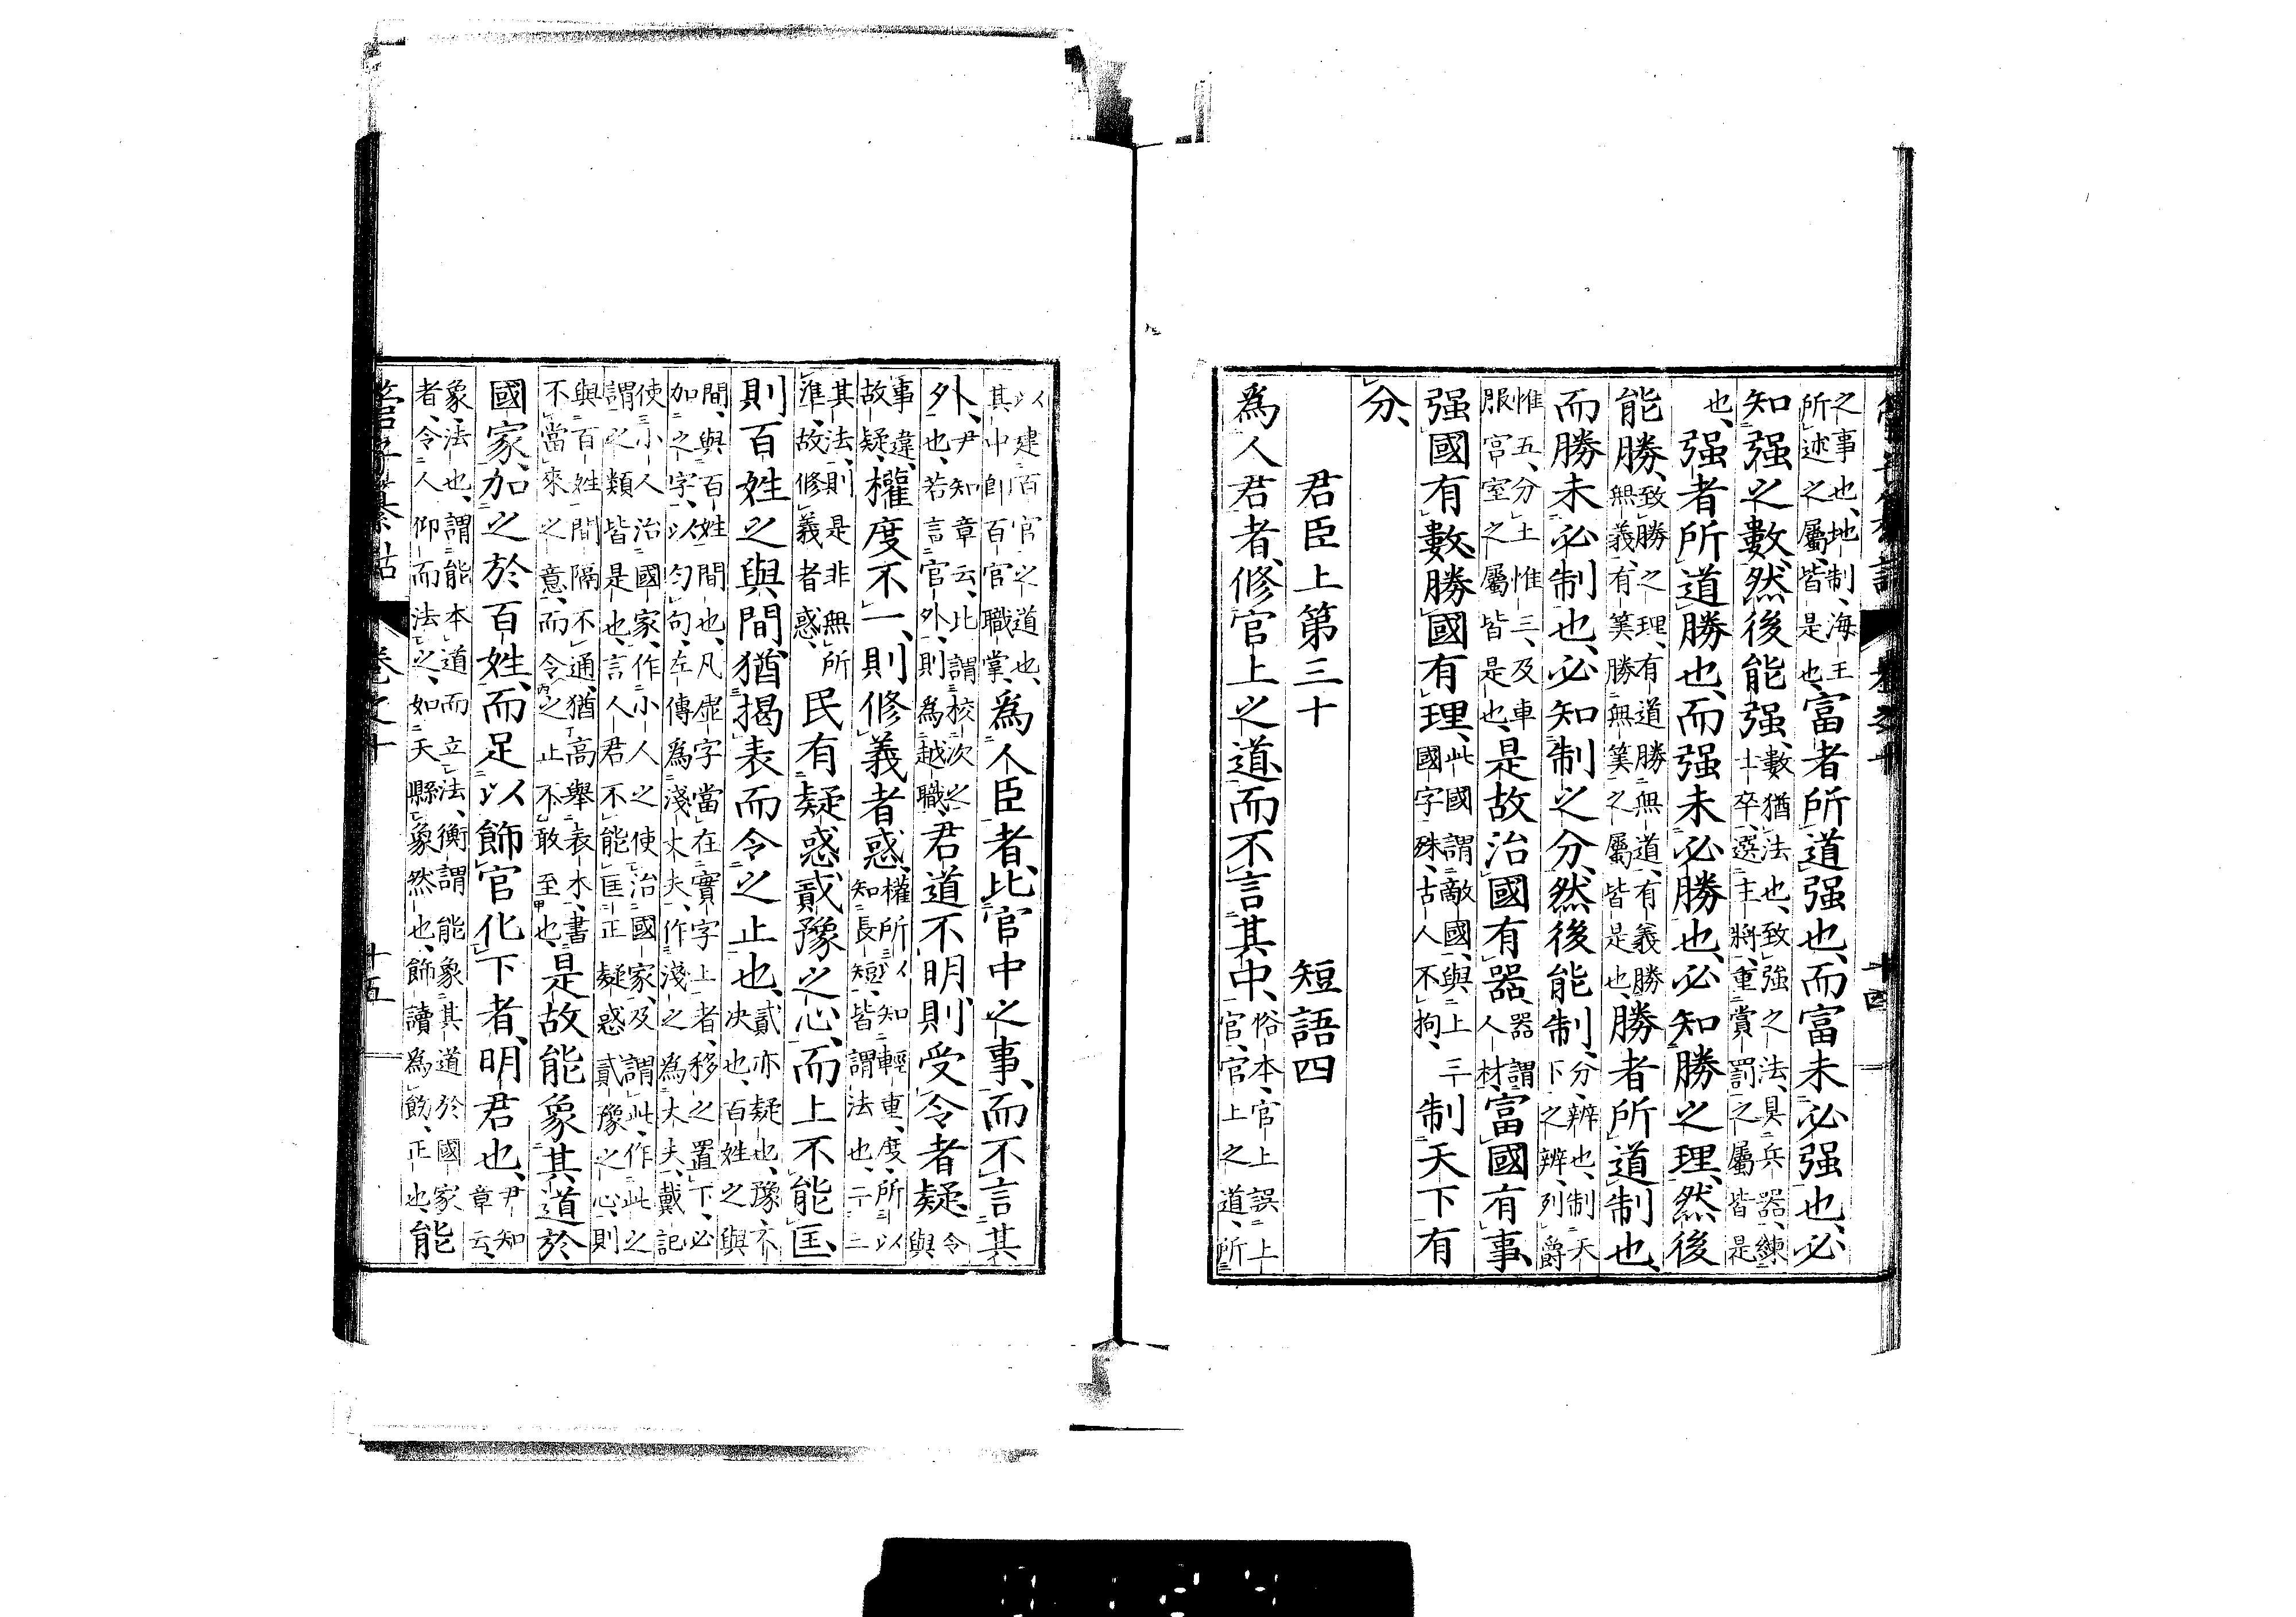 之事也、地制、海王
所述之屬、皆是也、富者所道强也、而富未必强也、必
知强之數、然後能强、數猶法也、致强之法、具兵器、練
士卒、選主將、重賞罰之屬皆是
也、强者所道勝也、而强未必勝也、必知勝之理、然後
能勝、致勝之理、有道勝無道、有義勝
無義、有筭勝無筭之屬皆是也、勝者所道制也、
而勝未必制也、必知制之分、然後能制、分、辨也、制天
下之辨、列爵
惟五、分土惟三、及車
服宮室之屬皆是也、是故治國有器、器謂
人材、富國有事、
强國有數、勝國有理、此國謂敵國、與上三
國字殊、古人不拘、制天下有
分、
君臣上第三十 短語四
爲人君者、修官上之道、而不言其中、俗本、官上誤上
官、官上之道、所
以建百官之道也、
其中卽百官職掌、爲人臣者、比官中之事、而不言其
外、尹知章云、比謂校次之
也、若言官外、則爲越職、君道不明、則受令者疑、令與
事違、
故疑、權度不一、則修義者惑、權所以知輕重、度、所以
知長短、皆謂法也、不一
其法、則是非無所
準、故修義者惑、民有疑惑貳豫之心、而上不能匡、
則百姓之與間、猶揭表而令之止也、貳亦疑也、豫、不
決也、百姓之與
間、與百姓間也、凡虛字當在實字上者、移之置下、必
加之字、以勻句、左傳爲淺丈夫、作淺之爲丈夫、戴記
使小人治國家、作小人之使治國家、及謂此、作此之
謂之類皆是也、言人君不能匡正疑惑貳豫之心、則
與百姓間隔不通、猶高舉表木、書
不當來之意、而令之止不敢至也、是故能象其道於
國家、加之於百姓、而足以飾官化下者、明君也、尹知
章云、
象、法也、謂能本道而立法、衡謂能象其道於國家
者、令人仰而法之、如天縣象然也、飾讀爲飭、正也、能
卷之十 十五